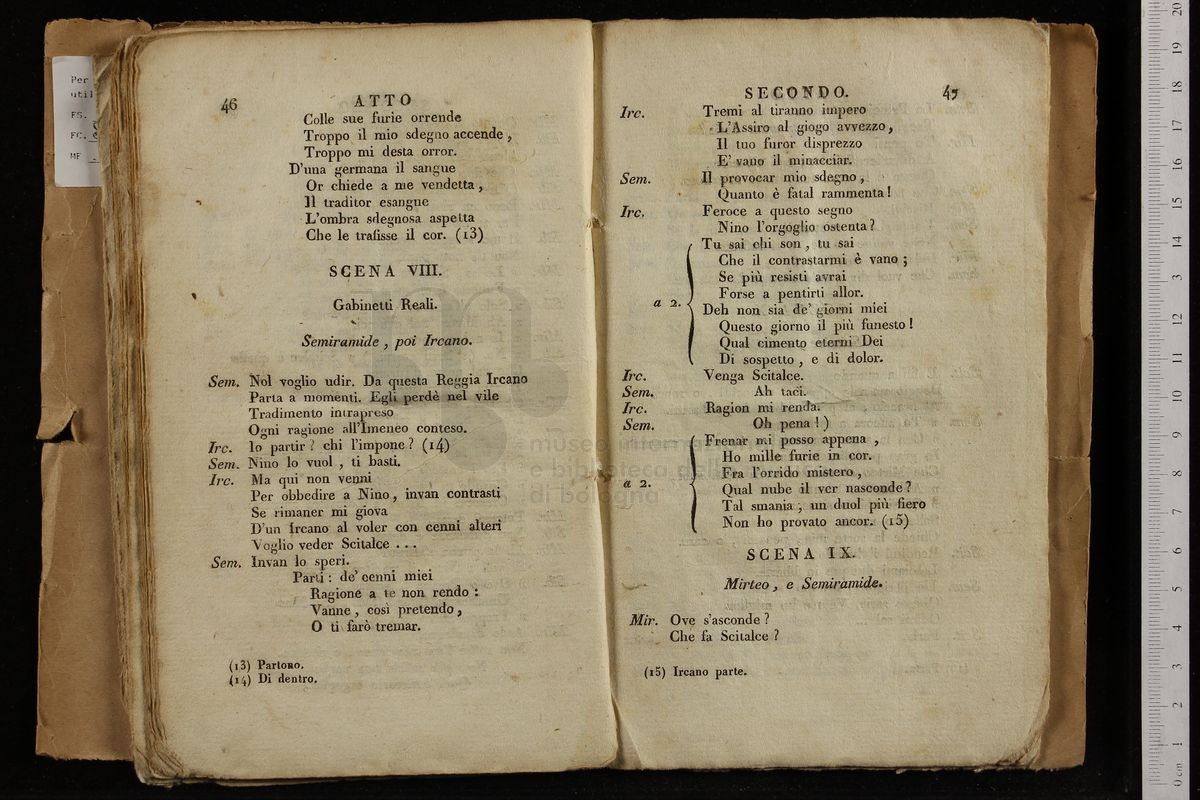 46
ATTO
Colle sue furie orrende
Troppo il mio sdegno accende,
Troppo mi desta orror.
D'una germana il sangue
Or chiede a me vendetta,
Il traditor esangue
L'ombra sdegnosa aspetta
Che le trafisse il cor. (13)
SCENA VIII.
Gabinetti Reali.
Semiramide, poi Ircano.
Sem. Nol voglio udir. Da questa Reggia Ircano
Parta a momenti. Egli perdè nel vile
Tradimento intrapreso
Ogni ragione all'Imeneo conteso.
Irc. Io partir? chi l'impone? (14)
Sem. Nino lo vuol, ti basti.
Irc. Ma qui non venni
Per obbedire a Nino, invan contrasti
Se rimaner mi giova
D'un Ircano al voler con cenni alteri
Voglio veder Scitalce ...
Sem. Invan lo speri.
Parti: de' cenni miei
Ragione a te non rendo:
Vanne, così pretendo,
O ti farò tremar.
(13) Partono.
(14) Di dentro.
SECONDO.
47
Irc. Tremi al tiranno impero
L'Assiro al giogo avvezzo,
Il tuo furor disprezzo
E' vano il minacciar.
Sem. Il provocar mio sdegno,
Quanto è fatal rammenta!
Irc. Feroce a questo segno
Nino l'orgoglio ostenta?
Tu sai chi son, tu sai
Che il contrastarmi è vano;
Se più resisti avrai
Forse a pentirti allor.
a 2.
Deh non sia de' giorni miei
Questo giorno il più funesto!
Qual cimento eterni Dei
Di sospetto, e di dolor.
Irc. Venga Scitalce.
Sem. Ah taci.
Irc. Ragion mi renda.
Sem. Oh pena!)
Frenar mi posso appena,
Ho mille furie in cor.
Fra l'orrido mistero,
a 2. Qual nube il ver nasconde?
Tal smania, un duol più fiero
Non ho provato ancor. (15)
SCENA IX.
Mirteo, e Semiramide.
Mir. Ove s'asconde?
Che fa Scitalce?
(15) Ircano parte.
Per
util
FS.
FC.
MF
museo interna
e biblioteca della
di bologna
0 cm 1 2 3 4 5 6 7 8 9 10 11 12 13 14 15 16 17 18 19 20